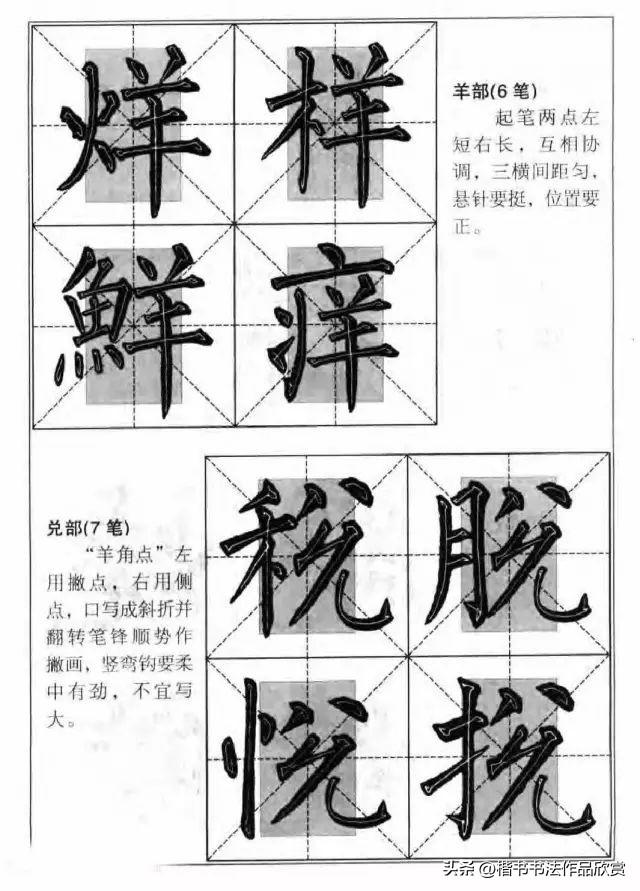 烊样
羊部(6笔)
起笔两点左
短右长，互相协
调，三横间距匀，
悬针要挺，位置要
正。
鮮痒
税脱
兑部(7笔)
“羊角点”左
用撇点，右用侧
点，口写成斜折并
翻转笔锋顺势作
撇画，竖弯钩要柔
中有劲，不宜写
大。
悦挩
头条 @楷书书法作品欣赏